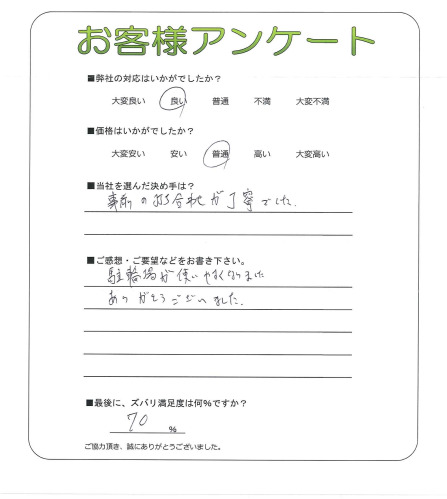 お客様アンケート
■弊社の対応はいかがでしたか?
大変良い 良い 普通 不満 大変不満
■価格はいかがでしたか?
大変安い 安い 普通 高い 大変高い
■当社を選んだ決め手は?
事前の打合わせが丁寧でした。
■ご感想・ご要望などをお書き下さい。
駐輪場が使いやすくなりました
ありがとうございました。
■最後に、ズバリ満足度は何%ですか?
70 %
ご協力頂き、誠にありがとうございました。